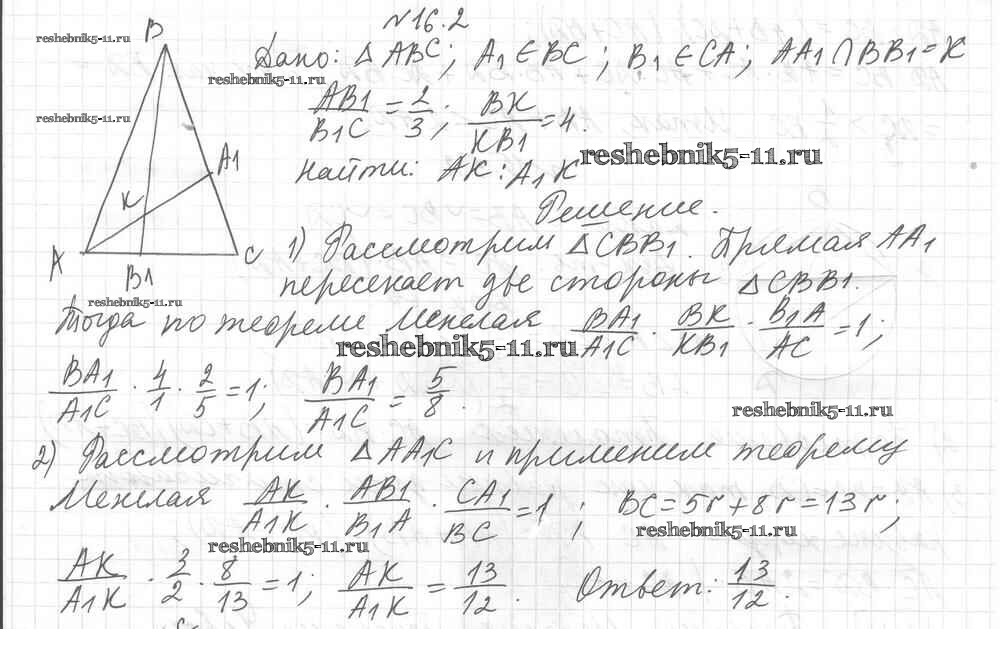 №16.2
reshebnik5-11.ru
B
Дано: △ABC; A₁∈BC; B₁∈CA; AA₁∩BB₁=K
reshebnik5-11.ru
AB₁/B₁C = 2/3; BK/KB₁ = 4.
reshebnik5-11.ru
reshebnik5-11.ru
Найти: AK : A₁K
A₁
K
A
B₁
C
Решение.
1) Рассмотрим △CBB₁. Прямая AA₁
пересекает две стороны △CBB₁.
reshebnik5-11.ru
Тогда по теореме Менелая BA₁/A₁C · BK/KB₁ · B₁A/AC = 1;
reshebnik5-11.ru
BA₁/A₁C · 4/1 · 2/5 = 1; BA₁/A₁C = 5/8.
reshebnik5-11.ru
2) Рассмотрим △AA₁C и применим теорему
Менелая AK/A₁K · AB₁/B₁A · CA₁/BC = 1; BC=5r+8r=13r;
reshebnik5-11.ru
reshebnik5-11.ru
AK/A₁K · 3/2 · 8/13 = 1; AK/A₁K = 13/12. Ответ: 13/12.